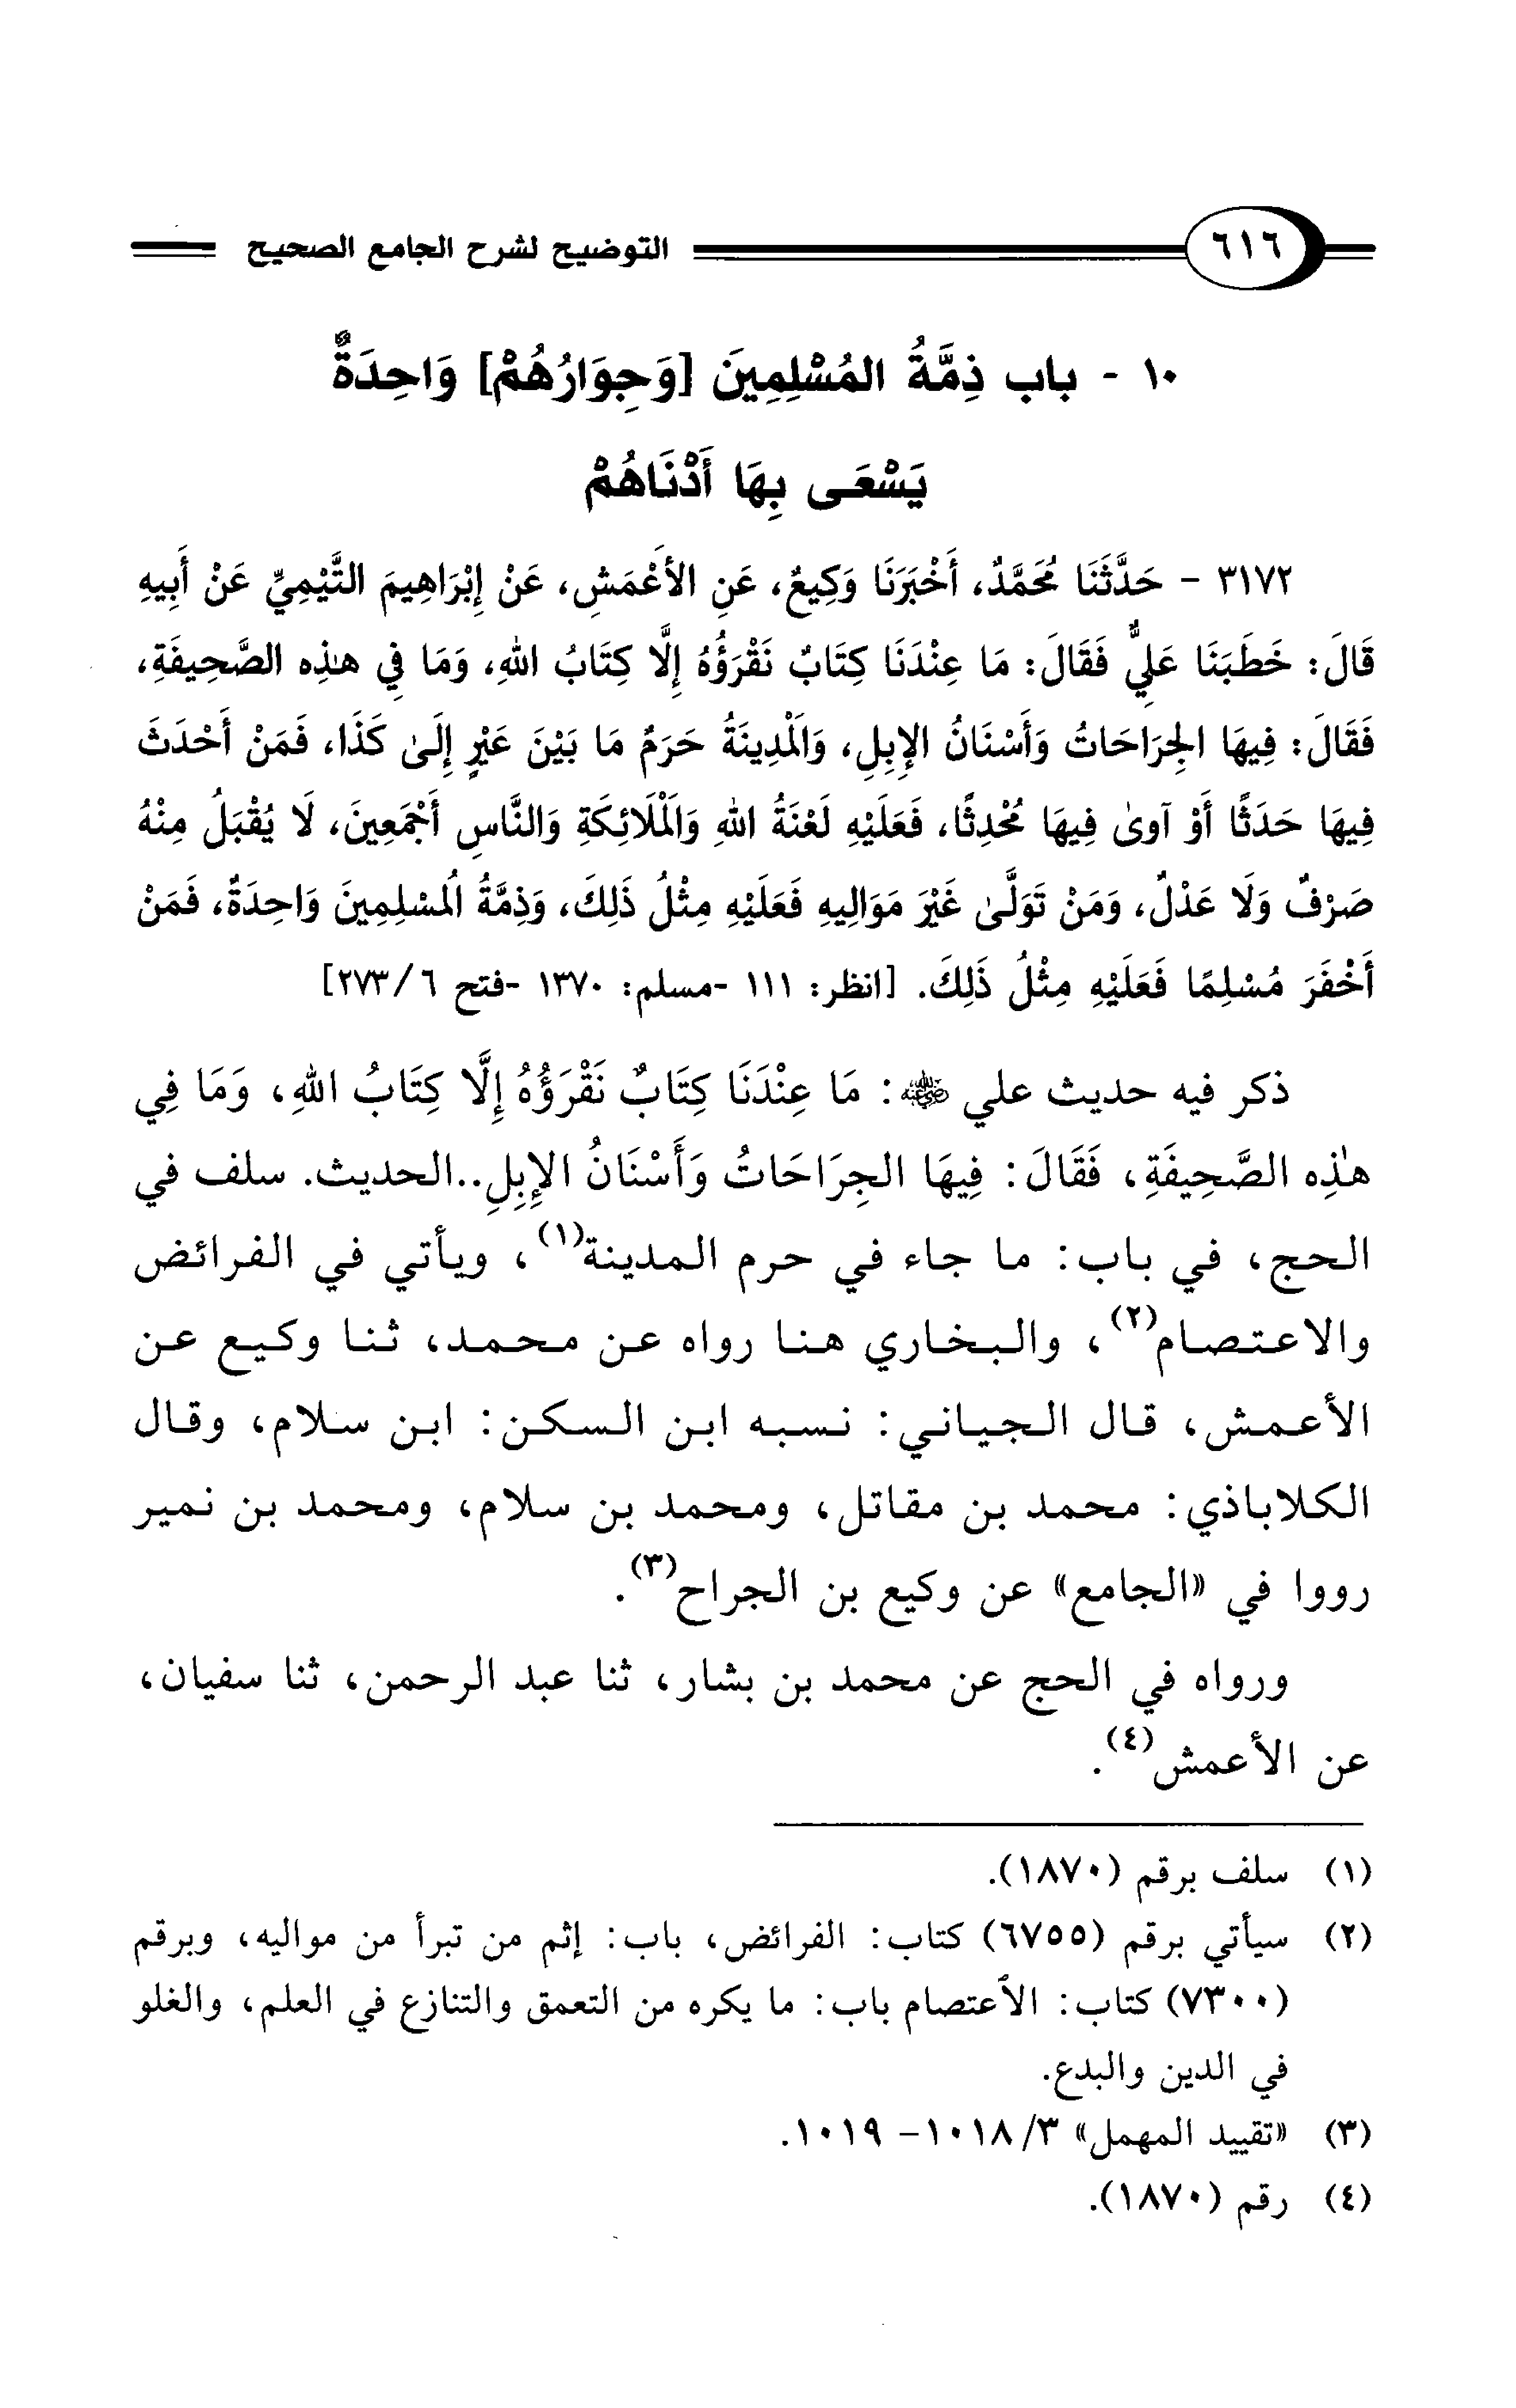 ٦١٦ التوضيح لشرح الجامع الصحيح
١٠ - باب ذِمَّةُ المُسْلِمِينَ [وَجِوَارُهُمْ] وَاحِدَةٌ
يَسْعَى بِهَا أَدْنَاهُمْ
٣١٧٢ - حَدَّثَنَا مُحَمَّدٌ، أَخْبَرَنَا وَكِيعٌ، عَنِ الأَعْمَشِ، عَنْ إِبْرَاهِيمَ التَّيْمِيِّ عَنْ أَبِيهِ
قَالَ: خَطَبَنَا عَلِيٌّ فَقَالَ: مَا عِنْدَنَا كِتَابٌ نَقْرَؤُهُ إِلَّا كِتَابُ اللهِ، وَمَا فِي هذِه الصَّحِيفَةِ،
فَقَالَ: فِيهَا الجِرَاحَاتُ وَأَسْنَانُ الإِبِلِ، وَالَمْدِينَةُ حَرَمٌ مَا بَيْنَ عَيْرٍ إِلَىٰ كَذَا، فَمَنْ أَحْدَثَ
فِيهَا حَدَثًا أَوْ آوىٰ فِيهَا مُحْدِثًا، فَعَلَيْهِ لَعْنَةُ اللهِ وَالَمْلَائِكَةِ وَالنَّاسِ أَجْمَعِينَ، لَا يُقْبَلُ مِنْهُ
صَرْفٌ وَلَا عَدْلٌ، وَمَنْ تَوَلَّىٰ غَيْرَ مَوَالِيهِ فَعَلَيْهِ مِثْلُ ذَلِكَ، وَذِمَّةُ الُمسْلِمِينَ وَاحِدَةٌ، فَمَنْ
أَخْفَرَ مُسْلِمًا فَعَلَيْهِ مِثْلُ ذَلِكَ. [انظر: ١١١ -مسلم: ١٣٧٠ -فتح ٦/ ٢٧٣]
ذكر فيه حديث علي ﵁: مَا عِنْدَنَا كِتَابٌ نَقْرَؤُهُ إِلَّا كِتَابُ اللهِ، وَمَا فِي
هذِه الصَّحِيفَةِ، فَقَالَ: فِيهَا الجِرَاحَاتُ وَأَسْنَانُ الإِبِلِ..الحديث. سلف في
الحج، في باب: ما جاء في حرم المدينة(١)، ويأتي في الفرائض
والاعتصام(٢)، والبخاري هنا رواه عن محمد، ثنا وكيع عن
الأعمش، قال الجياني: نسبه ابن السكن: ابن سلام، وقال
الكلاباذي: محمد بن مقاتل، ومحمد بن سلام، ومحمد بن نمير
رووا في «الجامع» عن وكيع بن الجراح(٣).
ورواه في الحج عن محمد بن بشار، ثنا عبد الرحمن، ثنا سفيان،
عن الأعمش(٤).
(١) سلف برقم (١٨٧٠).
(٢) سيأتي برقم (٦٧٥٥) كتاب: الفرائض، باب: إثم من تبرأ من مواليه، وبرقم
(٧٣٠٠) كتاب: الأعتصام باب: ما يكره من التعمق والتنازع في العلم، والغلو
في الدين والبدع.
(٣) «تقييد المهمل» ٣/ ١٠١٨- ١٠١٩.
(٤) رقم (١٨٧٠).